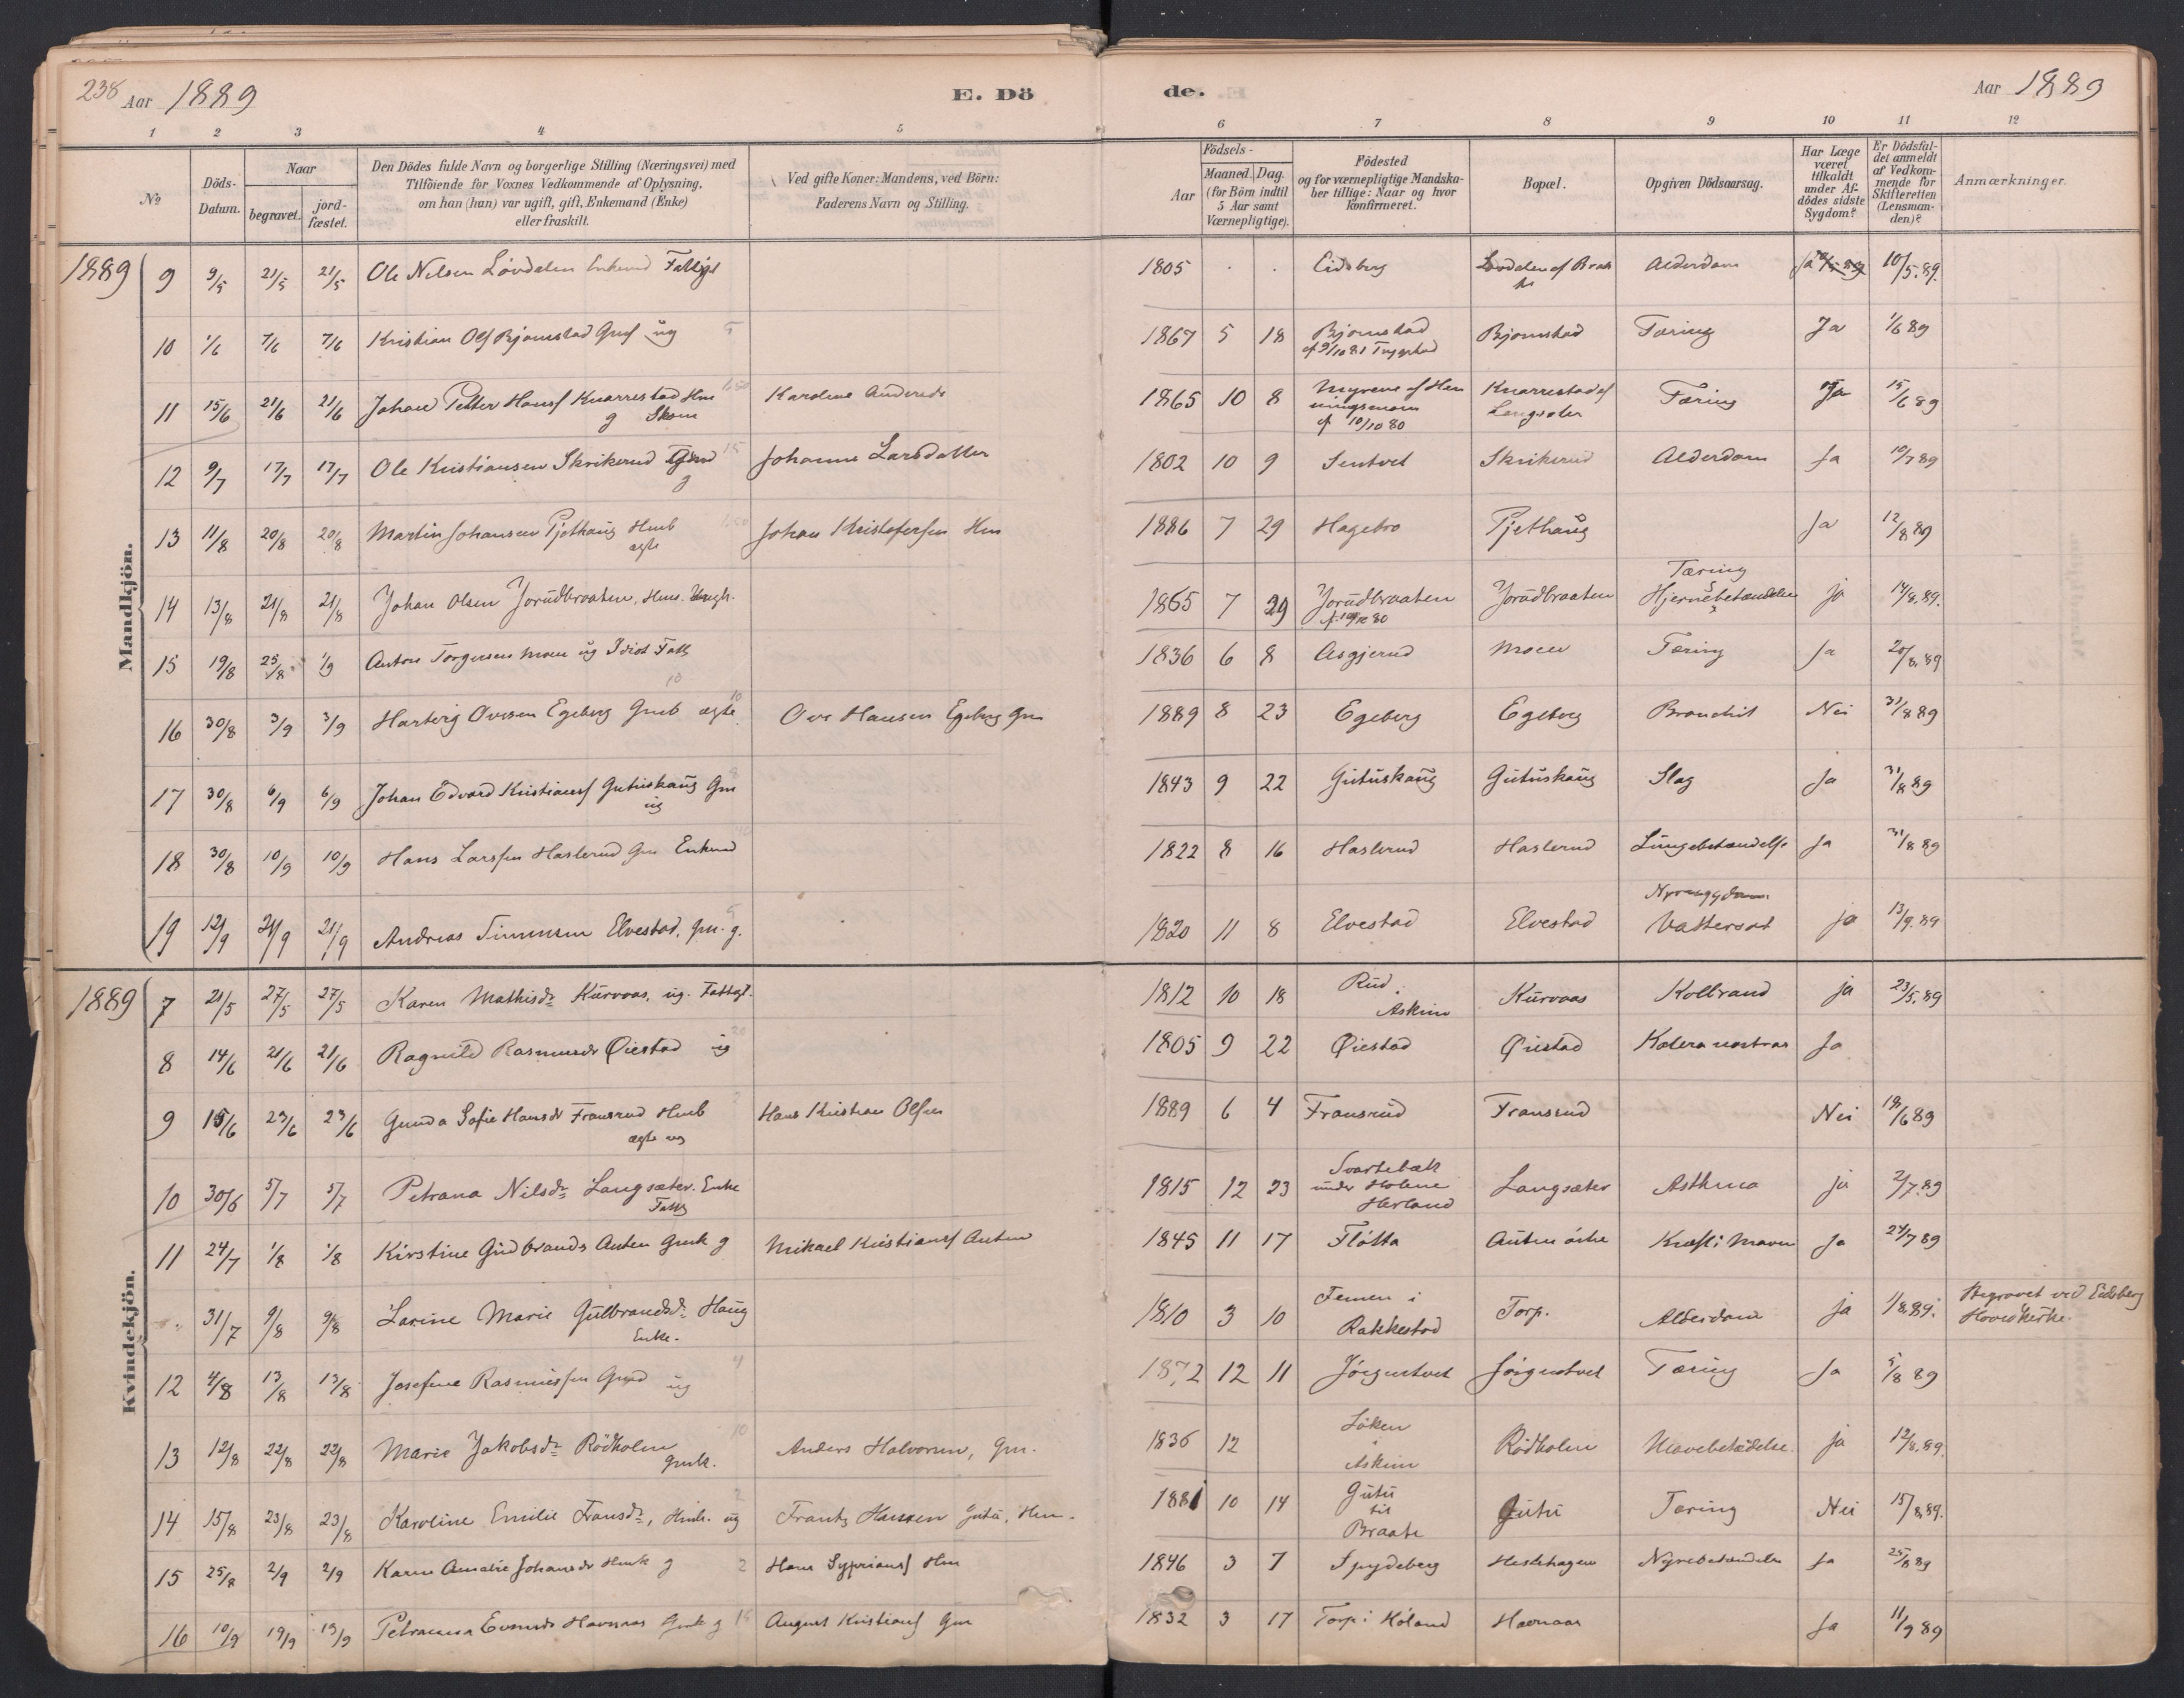 238 Aar 1889 E. Dö de. Aar 1889
1 2 3 4 5 6 7 8 9 10 11 12
No Döds-Datum. Naar begravet. jordfæstet. Den Dödes fulde Navn og borgerlige Stilling (Næringsvei) med Tilföiende for Voxnes Vedkommende af Oplysning, om han (hun) var ugift, gift, Enkemand (Enke) eller fraskilt. Ved gifte Koner: Mandens, ved Börn: Faderens Navn og Stilling. Födsels- Aar Maaned. Dag. (for Börn indtil 5 Aar samt Værnepligtige). Födested og for værnepligtige Mandskaber tillige: Naar og hvor konfirmeret. Bopæl. Opgiven Dödsaarsag. Har Læge været tilkaldt under Afdödes sidste Sygdom? Er Dödsfaldet anmeldt af Vedkommende for Skifteretten (Lensmanden)? Anmærkninger.
Mandkjön.
1889 9 9/5 21/5 21/5 Ole Nilsen Lövdalen Enkemd Fattigl 1805 Eidsberg Lövdalen af Alderdom Ja 10/5.89.
10 1/6 7/6 7/6 Kristian Ols Bjørnstad ug 5 1867 5 18 Bjørnstad Trygstad Bjørnstad Tæring Ja 1/6 89
11 15/6 21/6 21/6 Johan Petter Hans Knarrestad Hm g Skom Karoline Andersdr 1865 10 8 10/10 80 Knarrestad Langsæter Tæring Ja 15/6 89
12 9/7 17/7 17/7 Ole Kristiansen Skrikerud g 15 Johanne Larsdatter 1802 10 9 Sentvet Skrikerud Alderdom Ja 10/7 89
13 11/8 20/8 20/8 Martin Johansen Pjethaug Hmb ægte Johan Kristofersen Hm 1886 7 29 Hagebro Pjethaug Ja 12/8 89
14 13/8 21/8 21/8 Johan Olsen Jorudbraaten, Hms. 1865 7 29 Jorudbraaten Jorudbraaten Tæring Hjernebetændelse ja 14/8.89.
15 19/8 25/8 1/9 Anton Torgersen Moen ug Idiot Fatt 1836 6 8 Asgjerud Moen Tæring Ja 20/8.89
16 30/8 3/9 3/9 Hartvig Ovesen Egeberg Gmb ægte 10 Ove Hansen Egeberg Gm 1889 8 23 Egeberg Egeberg Nei 31/8 89
17 30/8 6/9 6/9 Johan Edvard Kristians Gutuskaug Gm ug 1843 9 22 Gutuskaug Gutuskaug Slag Ja 31/8 89
18 30/8 10/9 10/9 Hans Larssen Haslerud Gm Enkmd 1822 8 16 Haslerud Haslerud Lungebetændelse Ja 31/8 89
19 12/9 21/9 21/9 Andreas Simensen Elvestad, Gm. g. 1820 11 8 Elvestad Elvestad Vattersot ja 13/9.89
Kvindekjön.
1889 7 21/5 27/5 27/5 Karen Mathisdr Kurvaas, ug. Fattigl. 1812 10 18 Rud i Askim Kurvaas Kolbrand ja 23/5.89
8 14/6 21/6 21/6 Ragnild Rasmusdr Øiestad ug 20 1805 9 22 Øiestad Øiestad Kolera nostras Ja
9 15/6 23/6 23/6 Gunda Sofie Hansdr Fransrud Hmb ægte ug Hans Kristian Olsen 1889 6 4 Fransrud Fransrud Nei 18/6 89
10 30/6 5/7 5/7 Petrana Nilsdr Langsæter. Enke Fattig 1815 12 23 Svartebæk under Holene Hærland Langsæter Asthma ja 2/7.89
11 24/7 1/8 1/8 Kirstine Gudbrands Auten Gmk g Mikael Kristians Auten 1845 11 17 Flötta Auten östre Kræft i Maven Ja 24/7 89
" 31/7 9/8 9/8 Larine Marie Gulbrandsdr Haug Enke. 1810 3 10 Femen i Rakkestad Torp. Alderdom ja 1/8.89. Begravet ved Eidsberg Hovedkirke.
12 4/8 13/8 13/8 Josefine Rasmussen ug 4 1872 12 11 Jörgentvet Jörgentvet Tæring Ja 5/8 89
13 12/8 22/8 22/8 Marie Jakobsdr Rödholen Gmk. 10 Anders Halvorsen, Gm. 1836 12 Löken i Askim Rödholen Mavebetædelse. ja 12/8.89.
14 15/8 23/8 23/8 Karoline Emilie Fransdr, Hmb. ug 2 Frantz Hansen Gutu, Hm. 1881 10 14 Gutu til Braate Gutu Tæring Nei 15/8.89.
15 25/8 2/9 2/9 Karen Amalie Johansdr Hmk g 2 Hans Syprians Hm 1846 3 7 Spydeberg Hestehagen Nyrebetændelse Ja 25/8 89
16 10/9 19/9 19/9 Petranna Evensdr Havnaas Gmk g 15 August Kristians Gm 1832 3 17 Torp i Höland Havnaas Ja 11/9 89